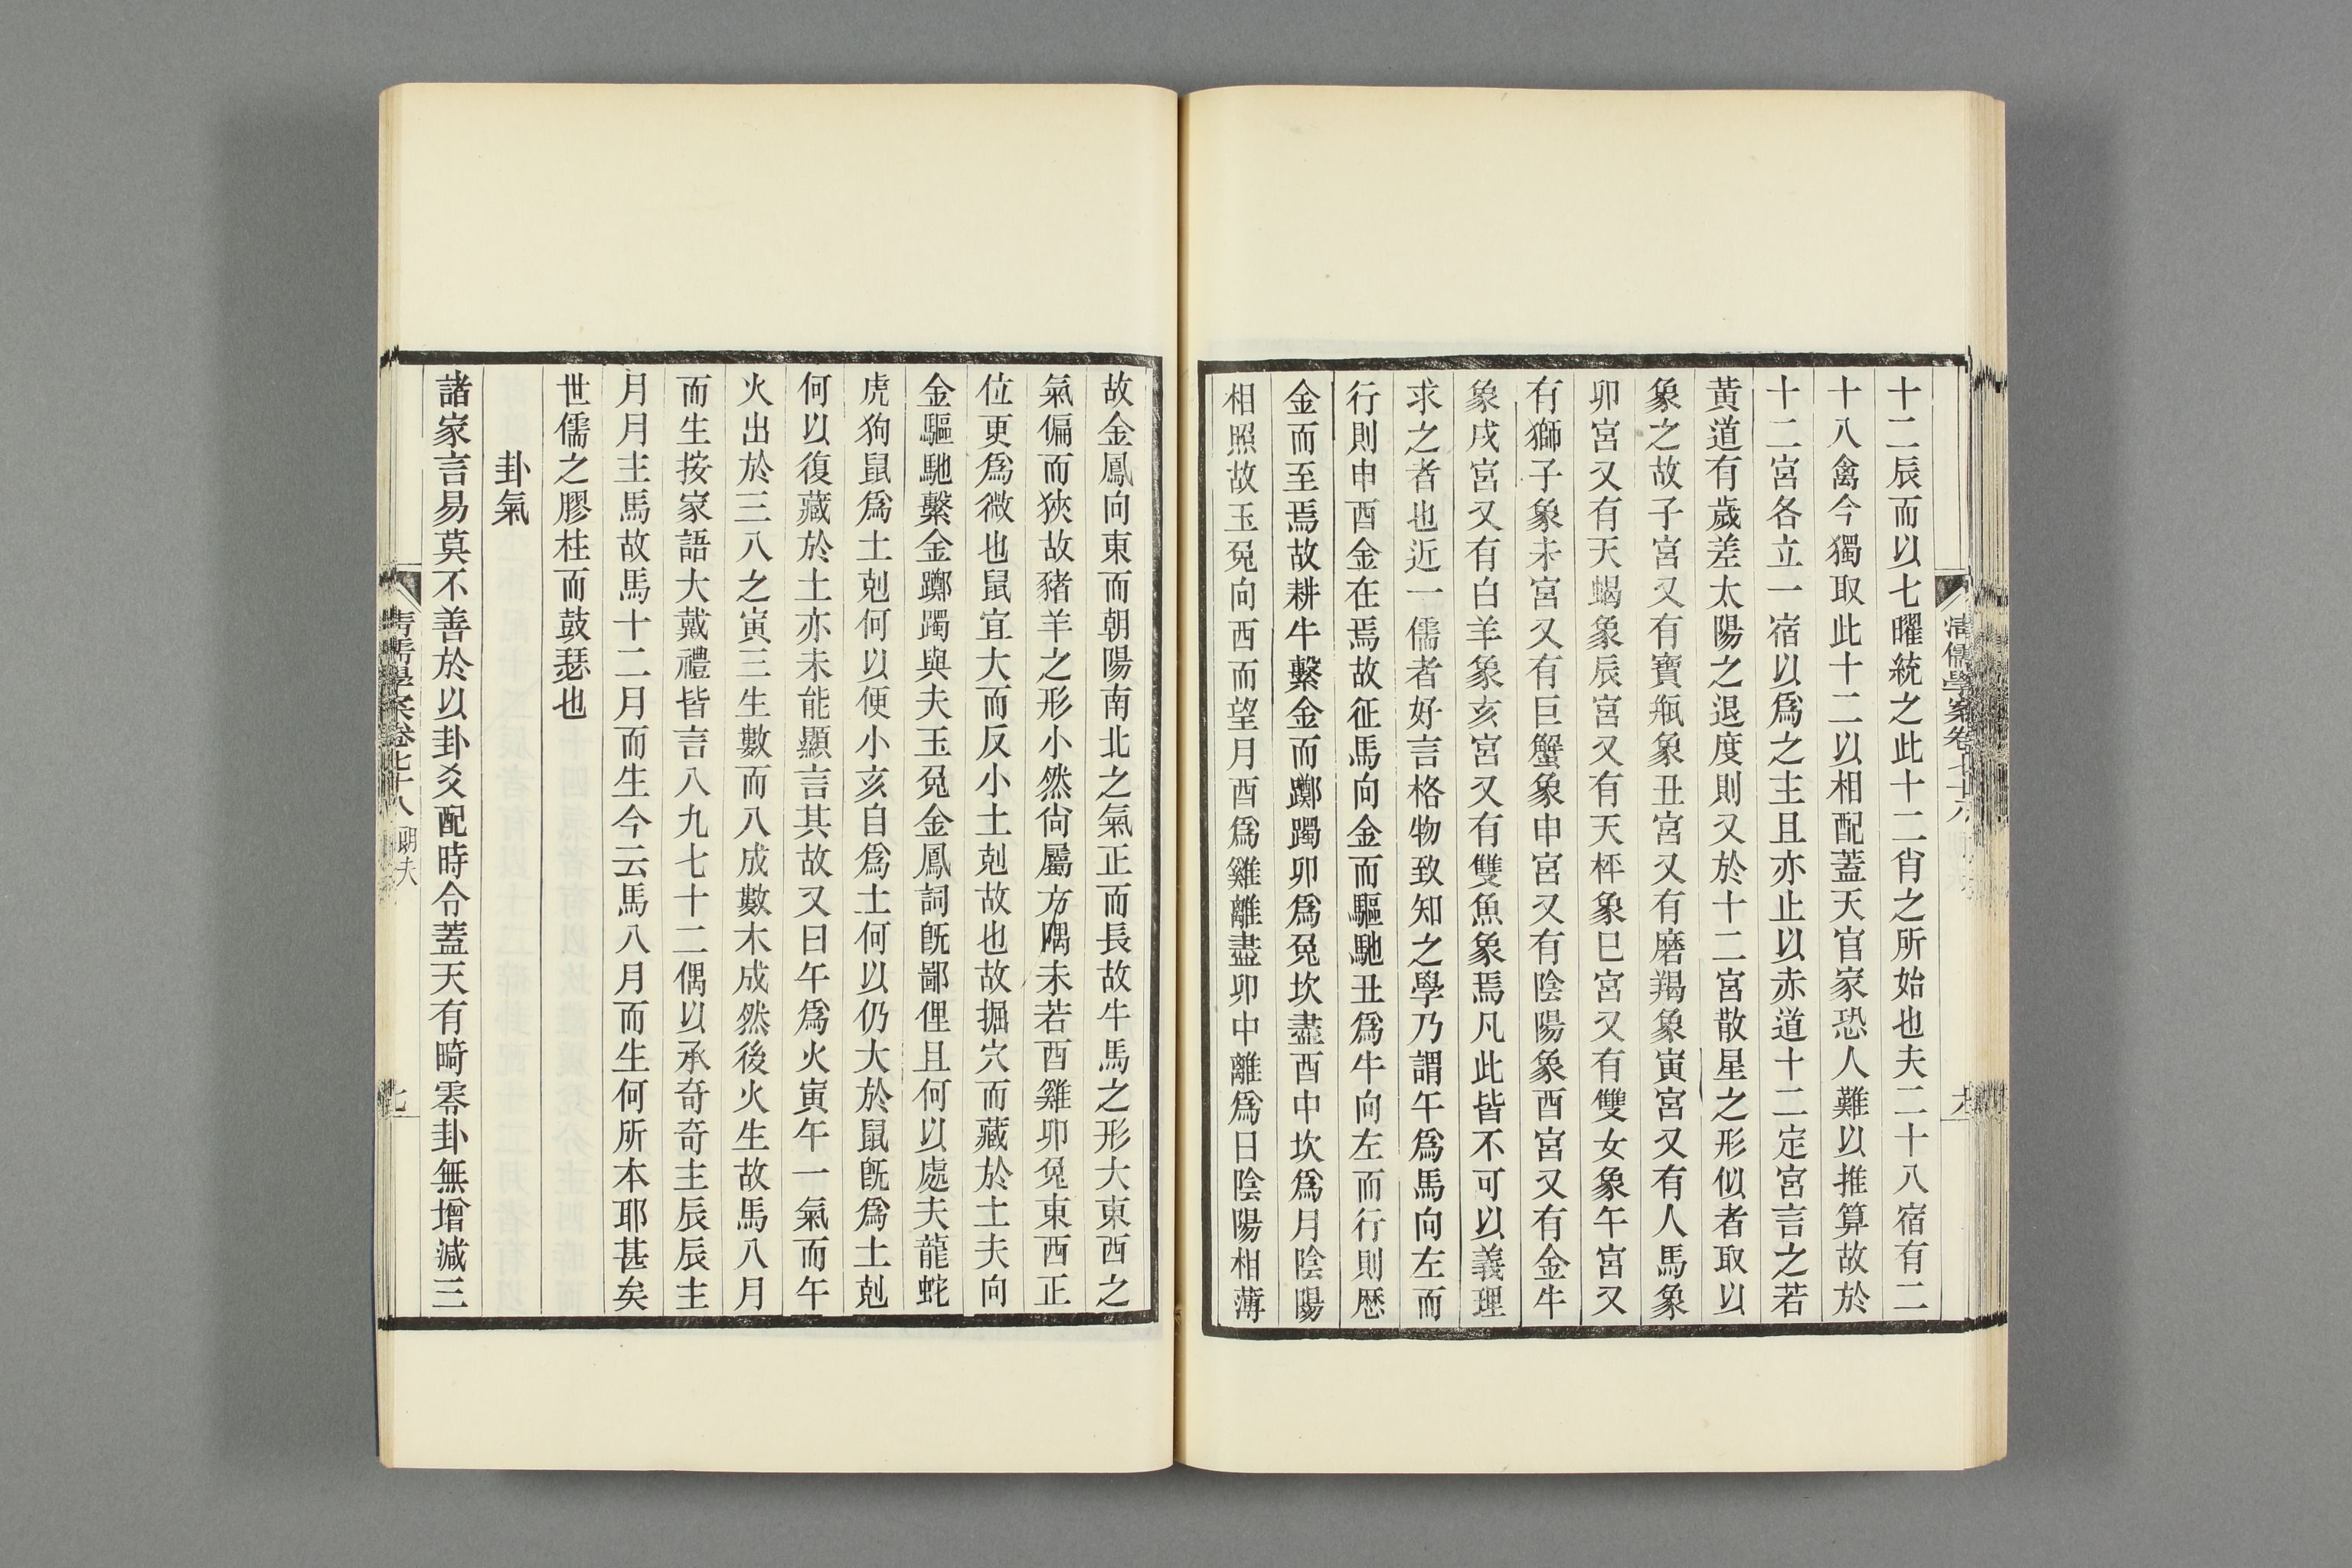 清儒學案卷七十八
十二辰而以七曜統之此十二肖之所始也夫二十八宿有二
十八禽今獨取此十二以相配蓋天官家恐人難以推算故於
十二宮各立一宿以爲之主且亦止以赤道十二定宮言之若
黄道有歲差太陽之退度則又於十二宮散星之形似者取以
象之故子宮又有寶瓶象丑宮又有磨羯象寅宮又有人馬象
卯宮又有天蝎象辰宮又有天枰象巳宮又有雙女象午宮又
有獅子象未宮又有巨蟹象申宮又有陰陽象酉宮又有金牛
象戌宮又有白羊象亥宮又有雙魚象焉凡此皆不可以義理
求之者也近一儒者好言格物致知之學乃謂午爲馬向左而
行則申酉金在焉故征馬向金而驅馳丑爲牛向左而行則歷
金而至焉故耕牛繫金而躑躅卯爲兔坎盡酉中坎爲月陰陽
相照故玉兔向西而望月酉爲雞離盡卯中離爲日陰陽相薄
故金鳳向東而朝陽南北之氣正而長故牛馬之形大東西之
氣偏而狹故豬羊之形小然尙屬方隅未若酉雞卯兔東西正
位更爲微也鼠宜大而反小土剋故也故掘穴而藏於土夫向
金驅馳繫金躑躅與夫玉兔金鳳詞旣鄙俚且何以處夫龍蛇
虎狗鼠爲土剋何以便小亥自爲土何以仍大於鼠旣爲土剋
何以復藏於土亦未能顯言其故又曰午爲火寅午一氣而午
火出於三八之寅三生數而八成數木成然後火生故馬八月
而生按家語大戴禮皆言八九七十二偶以承奇奇主辰辰主
月月主馬故馬十二月而生今云馬八月而生何所本耶甚矣
世儒之膠柱而鼓瑟也
卦氣
諸家言易莫不善於以卦爻配時令蓋天有畸零卦無增減三
清儒學案卷七十八 朗夫 七